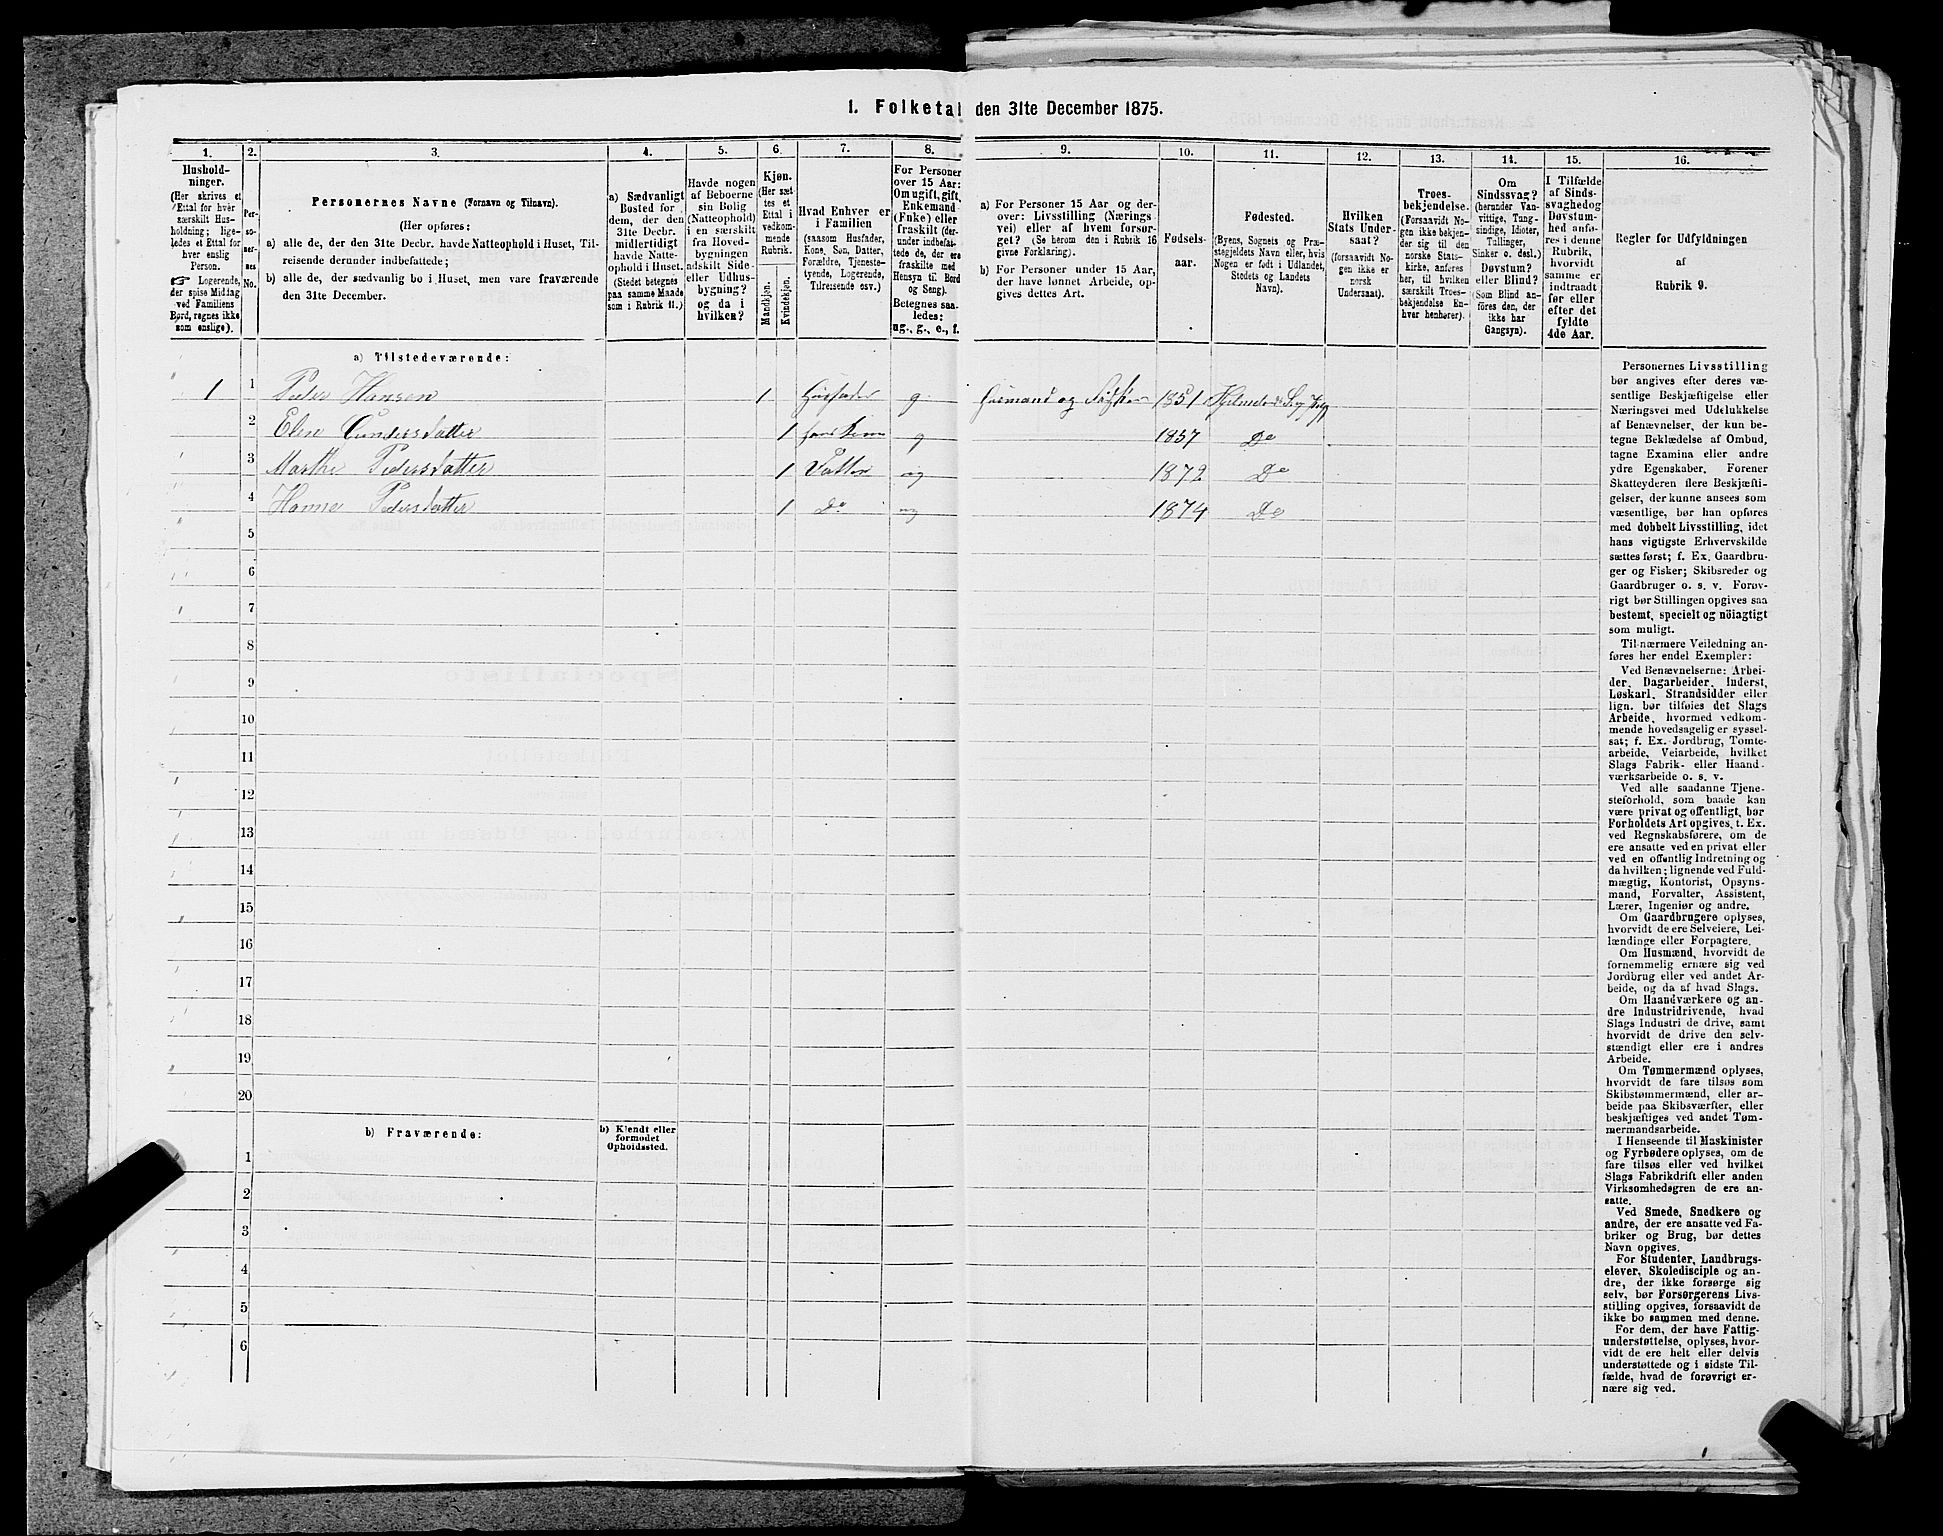 1. Folketal den 31te December 1875.
1. 2. 3. 4. 5. 6. 7. 8. 9. 10. 11. 12. 13. 14. 15. 16.
Hushold-
ninger.
(Her skrives et
Ettal for hver
særskilt Hus-
holdning; lige-
ledes et Ettal for
hver enslig
Person.
☞ Logerende,
der spise Middag
ved Familiens
Bord, regnes ikke
som enslige).
Per-
so-
ner-
nes
No.
Personernes Navne (Fornavn og Tilnavn).
(Her opføres:
a) alle de, der den 31te Decbr. havde Natteophold i Huset, Til-
reisende derunder indbefattede;
b) alle de, der sædvanlig bo i Huset, men vare fraværende
den 31te December.
a) Sædvanligt
Bosted for
dem, der den
31te Decbr.
midlertidigt
havde Natte-
ophold i Huset.
(Stedet betegnes
paa samme Maade
som i Rubrik 11.)
Havde nogen
af Beboerne
sin Bolig
(Natteophold)
i en særskilt
fra Hoved-
bygningen
adskilt Side-
eller Udhus-
bygning?
og da i
hvilken?
Kjøn.
(Her sæt-
tes et
Ettal i
vedkom-
mende
Rubrik.
Mandkjøn.
Kvindekjøn.
Hvad Enhver er
i Familien
(saasom Husfader,
Kone, Søn, Datter,
Forældre, Tjeneste-
tyende, Logerende,
Tilreisende osv.)
For Personer
over 15 Aar:
Om ugift, gift,
Enkemand
(Enke) eller
fraskilt (der-
under indbefat-
tede de, der ere
fraskilte med
Hensyn til Bord
og Seng).
Betegnes saa-
ledes:
ug., g., e., f.
a) For Personer 15 Aar og der-
over: Livsstilling (Nærings-
vei) eller af hvem forsør-
get? (Se herom den i Rubrik 16
givne Forklaring).
b) For Personer under 15 Aar,
der have lønnet Arbeide, op-
gives dettes Art.
Fødsels-
aar.
Fødested.
(Byens, Sognets og Præ-
stegjeldets Navn eller, hvis
Nogen er født i Udlandet,
Stedets og Landets
Navn).
Hvilken
Stats Under-
saat?
(forsaavidt No-
gen ikke er
norsk
Undersaat).
Troes-
bekjendelse.
(Forsaavidt No-
gen ikke bekjen-
der sig til den
norske Stats-
kirke, anføres
her, til hvilken
særskilt Troes-
bekjendelse En-
hver henhører).
Om
Sindssvag?
(herunder Van-
vittige, Tung-
sindige, Idioter,
Tullinger,
Sinker o. desl.)
Døvstum?
eller Blind?
(Som Blind an-
føres den, der
ikke har
Gangsyn).
I Tilfælde
af Sinds-
svaghed og
Døvstum-
hed anfø-
res i denne
Rubrik,
hvorvidt
samme er
indtraadt
før eller
efter det
fyldte
4de Aar.
Regler for Udfyldningen
af
Rubrik 9.
a) Tilstedeværende:
1 1 Peder Hansen 1 Husfader g Husmand og Fisker 1851
2 Elen Gundersdatter 1 hans Kone g 1857 Do
3 Marthe Pedersdatter 1 Datter ug 1872 Do
4 Hanna Pedersdatter 1 Do ug 1874 Do
5
6
7
8
9
10
11
12
13
14
15
16
17
18
19
20
b) Fraværende: b) Kjendt eller
formodet
Opholdssted.
1
2
3
4
5
6
Personernes Livsstilling
bør angives efter deres væ-
sentlige Beskjæftigelse eller
Næringsvei med Udelukkelse
af Benævnelser, der kun be-
tegne Beklædelse af Ombud,
tagne Examina eller andre
ydre Egenskaber. Forener
Skatteyderen flere Beskjæfti-
gelser, der kunne ansees som
væsentlige, bør han opføres
med dobbelt Livsstilling, idet
hans vigtigste Erhvervskilde
sættes først; f. Ex. Gaardbru-
ger og Fisker; Skibsreder og
Gaardbruger o. s. v. Forøv-
rigt bør Stillingen opgives saa
bestemt, specielt og nöiagtigt
som muligt.
Til nærmere Veiledning an-
føres her endel Exempler:
Ved Benævnelserne: Arbei-
der, Dagarbeider, Inderst,
Løskarl, Strandsidder eller
lign. bør tilføies det Slags
Arbeide, hvormed vedkom-
mende hovedsagelig er syssel-
sat; f. Ex. Jordbrug, Tomte-
arbeide, Veiarbeide, hvilket
Slags Fabrik- eller Haand-
værksarbeide o. s. v.
Ved alle saadanne Tjene-
steforhold, som baade kan
være privat og offentligt, bør
Forholdets Art opgives, t. Ex.
ved Regnskabsførere, om de
ere ansatte ved en privat eller
ved en offentlig Indretning og
da hvilken; lignende ved Fuld-
mægtig, Kontorist, Opsyns-
mand, Forvalter, Assistent,
Lærer, Ingeniør og andre.
Om Gaardbrugere oplyses,
hvorvidt de ere Selveiere, Lei-
lændinge eller Forpagtere.
Om Husmænd, hvorvidt de
fornemmelig ernære sig ved
Jordbrug eller ved andet Ar-
beide, og da af hvad Slags.
Om Haandværkere og an-
dre Industridrivende, hvad
Slags Industri de drive, samt
hvorvidt de drive den selv-
stændigt eller ere i andres
Arbeide.
Om Tømmermænd oplyses,
hvorvidt de fare tilsøs som
Skibstømmermænd, eller ar-
beide paa Skibsværfter, eller
beskjæftiges ved andet Tøm-
mermandsarbeide.
I Henseende til Maskinister
og Fyrbødere oplyses, om de
fare tilsøs eller ved hvilket
Slags Fabrikdrift eller anden
Virksomhedsgren de ere an-
satte.
Ved Smede, Snedkere og
andre, der ere ansatte ved Fa-
briker og Brug, bør dettes
Navn opgives.
For Studenter, Landbrugs-
elever, Skoledisciple og an-
dre, der ikke forsørge sig
selv, bør Forsørgerens Livs-
stilling opgives, forsaavidt de
ikke bo sammen med denne.
For dem, der have Fattig-
understøttelse, oplyses, hvor-
vidt de ere helt eller delvis
understøttede og i sidste Til-
fælde, hvad de forøvrigt er-
nære sig ved.